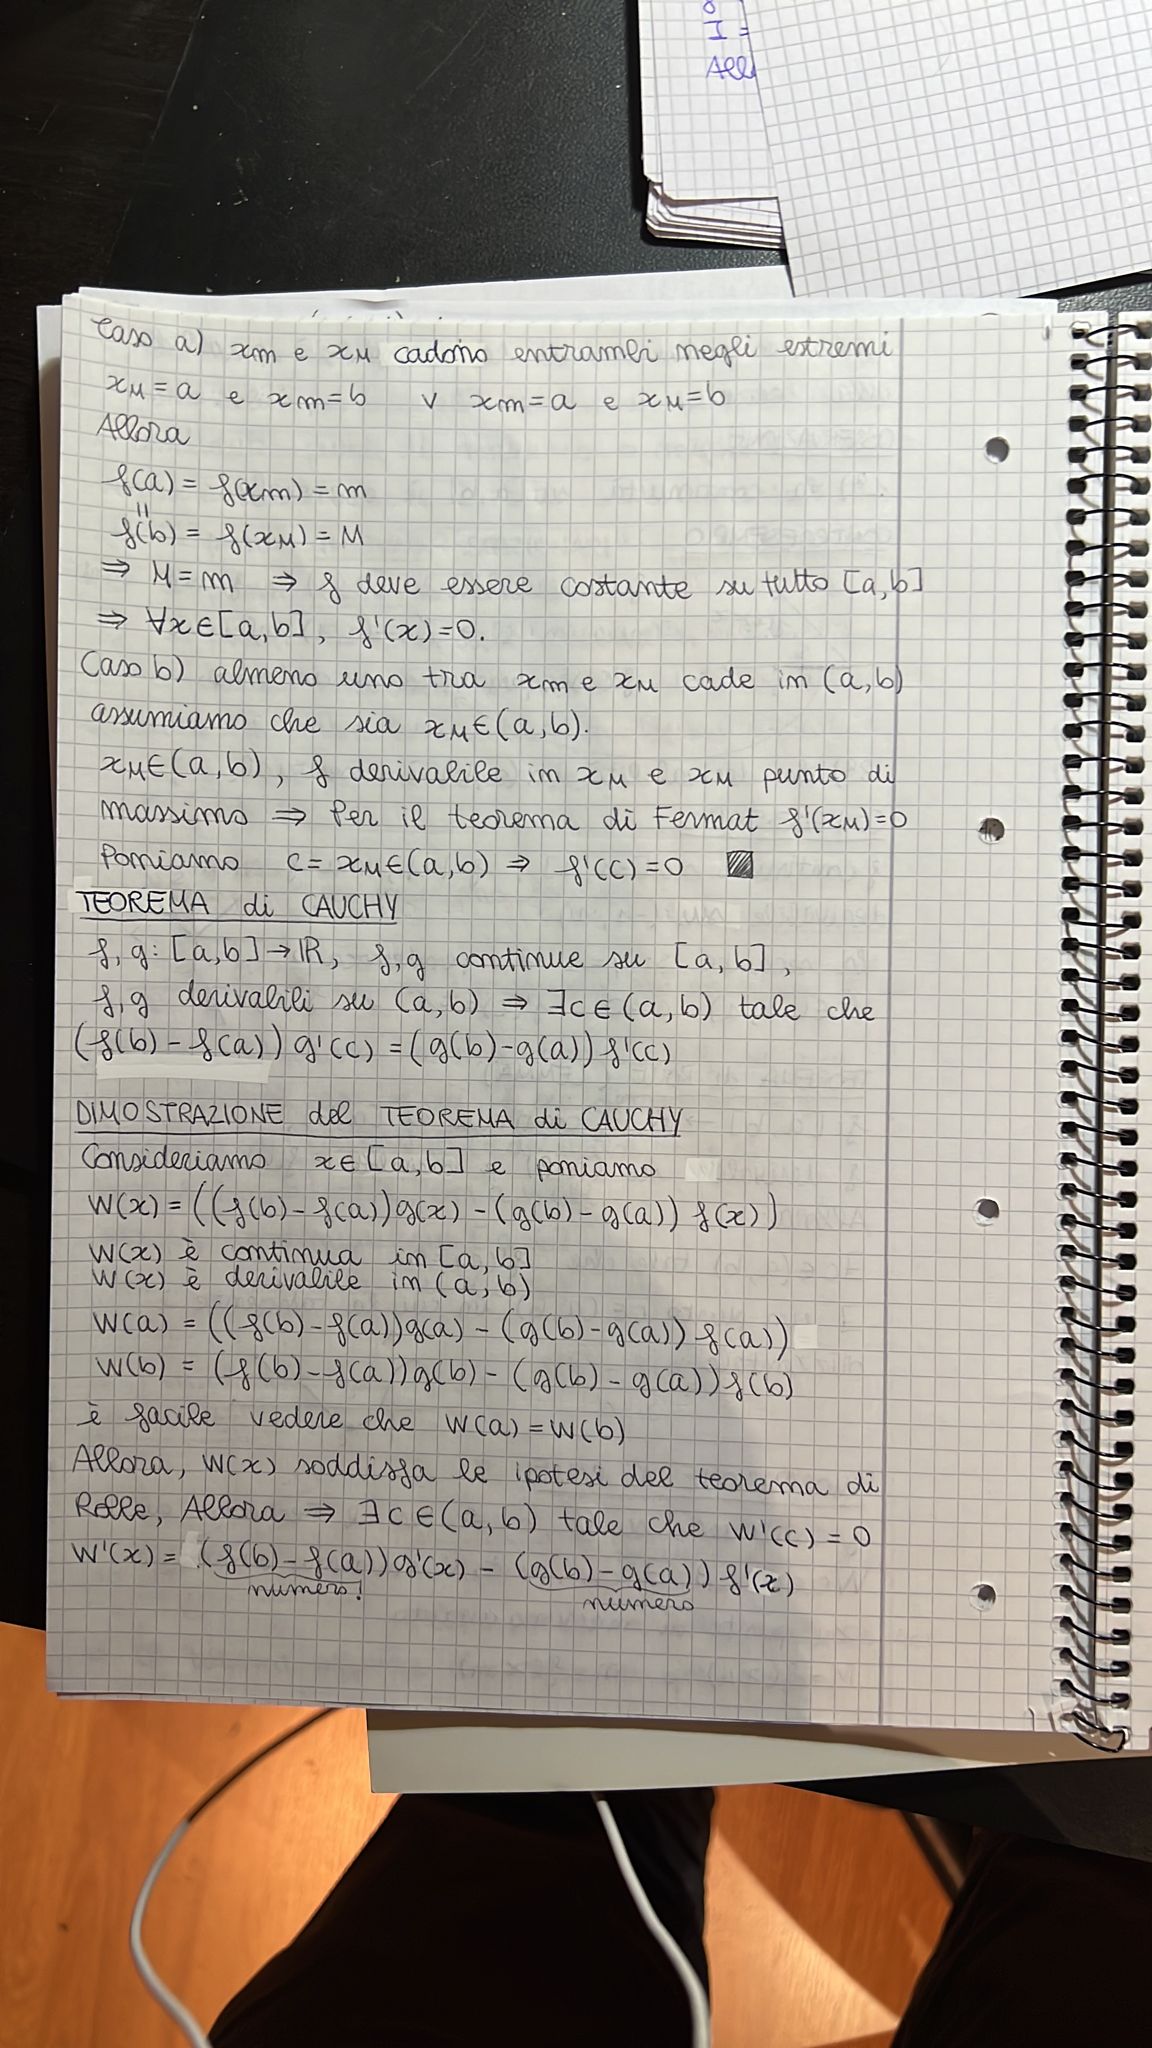 I =
All
Caso a) xm e xM cadono entrambi negli estremi
xM = a e xm = b ∨ xm = a e xM = b
Allora
f(a) = f(xm) = m
=
f(b) = f(xM) = M
⇒ M = m ⇒ f deve essere costante su tutto [a,b]
⇒ ∀x∈[a,b], f'(x)=0.
Caso b) almeno uno tra xm e xM cade in (a,b)
assumiamo che sia xM∈(a,b).
xM∈(a,b), f derivabile in xM e xM punto di
massimo ⇒ Per il teorema di Fermat f'(xM)=0
Poniamo c = xM∈(a,b) ⇒ f'(c)=0
TEOREMA di CAUCHY
f,g: [a,b]→ℝ, f,g continue su [a,b],
f,g derivabili su (a,b) ⇒ ∃c∈(a,b) tale che
(f(b)-f(a)) g'(c) = (g(b)-g(a)) f'(c)
DIMOSTRAZIONE del TEOREMA di CAUCHY
Consideriamo x∈[a,b] e poniamo
W(x) = ((f(b)-f(a))g(x) - (g(b)-g(a)) f(x))
W(x) è continua in [a,b]
W(x) è derivabile in (a,b)
W(a) = ((f(b)-f(a))g(a) - (g(b)-g(a)) f(a))
W(b) = (f(b)-f(a))g(b) - (g(b)-g(a)) f(b)
è facile vedere che W(a)=W(b)
Allora, W(x) soddisfa le ipotesi del teorema di
Rolle, Allora ⇒ ∃c∈(a,b) tale che W'(c)=0
W'(x) = (f(b)-f(a))g'(x) - (g(b)-g(a)) f'(x)
numero! numero